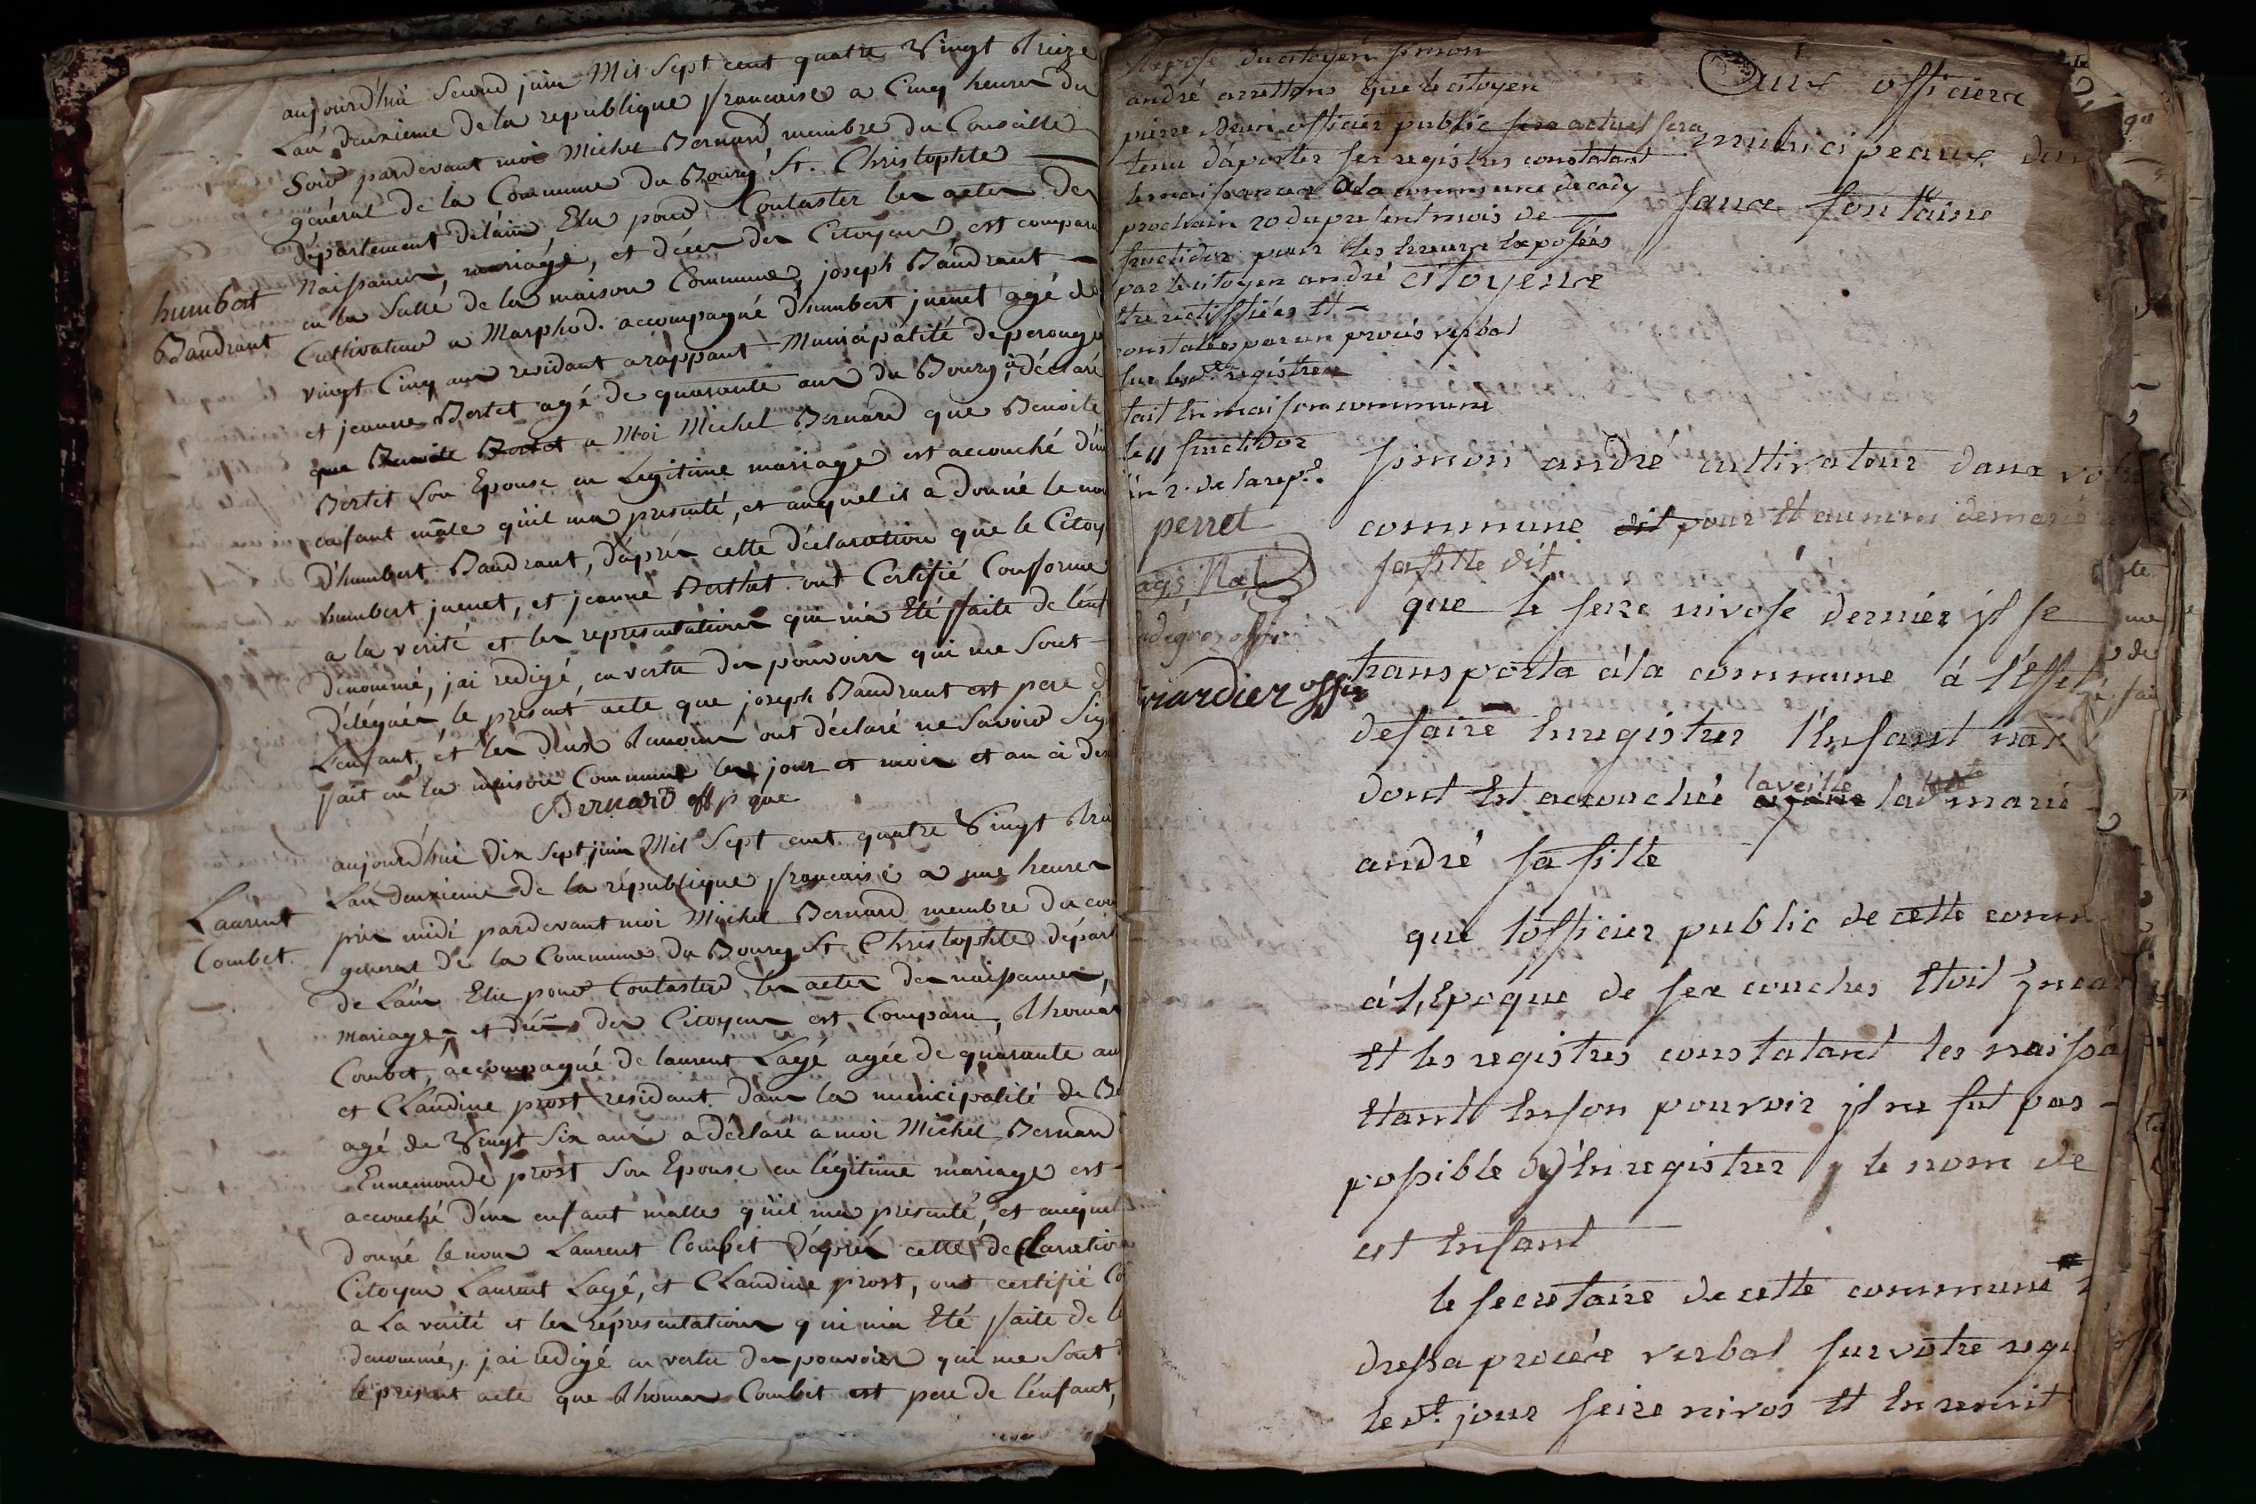 aujourd'hui second juin Mil Sept cent quatre Vingt treize
L'an deuxieme de la republique francaise a Cinq heures du
Soir pardevant moi Michel Bernard membre du Conseille
général de la Commune du Bourg St. Christophle
département de l'ain Elu pour Contaster les actes des
Naissances, mariage, et décès des Citoyens, est comparu
en la Salle de la maison Commune, joseph Baudrant
humbert
Baudrant
Cultivateur a Marphod. accompagné d'humbert juenet agé de
vingt Cinq ans residant a rappant Municipalité de perouge
et jeanne Bertet agé de quarante ans du Bourg, a déclaré
que Benoite Bertet a Moi Michel Bernard que Benoite
Bertet Son Epouse en Legitime mariage est accouché d'un
enfant mâle qu'il ma presenté, et auquel il a donné le nom
D'humbert Baudrant, d'après cette déclaration que le Citoy
humbert juenet, et jeanne Berthet ont Certifié Conforme
a la verité et les representations qui m'a Eté faite de l'enf
dénommé, j'ai redigé en vertu des pouvoirs qui me Sont
Délégués, le present acte que joseph Baudrant est pere d
L'enfant, et les deux temoins ont déclaré ne Savoir Sig
fait en la maison Commune les jour et mois et an ci des
Bernard off p que
aujourd'hui Dix Sept juin Mil Sept cent quatre Vingt trei
L'an deuxieme de la république francaise a une heures
Laurent
Combet
près midi pardevant moi Michel Bernard membre du con
general de la Commune du Bourg St. Christophle départ
de L'ain Elu pour Contaster les actes des naissances,
mariages, et décès des Citoyens est Comparu, thomas
Combet, accompagné de laurent Lagé agée de quarante ans
et Claudine prost residant dans la municipalité du Bo
agé de Vingt Six ans a déclaré a moi Michel Bernard
Ennemonde prost Son Epouse en légitime mariage est
accouché d'un enfant malle qu'il ma présenté, et auquel
donné le nom Laurent Combet d'après cette declaration
Citoyen Laurent Lagé, et Claudine prost, ont certifié Co
a La vérité et les répresentations qui m'a Eté faite de l
denommés, j'ai redigé en vertu des pouvoirs qui me Sont
le present acte que thomas Combet est pere de l'enfant,
Exposé du citoyen simon
andré arrettons que le citoyen
pierre officier public sera actuel sera
tenu d'aporter ses registres constatant
les naissances a la commune decady
prochain 20 du present mois de
fructidor pour les erreurs exposées
par le citoyen andré
etre rectiffiées et
constatées par un procès verbal
sur les dts registres
fait en maison commune
le 11 fructidor
l'an 2e de la repe.
perret
ags nal
viardier offier
Aux officiers
municipeaux dans
fause fontaine
citoyens
simon andré cultivateur dans votre
commune dit pour et au nom de marie
sa fille dit
que le seize nivose dernier il se
transporta à la commune à l'effet
de faire enregistrer l'enfant nat
dont est accouchée la veille lade marie
andré sa fille
que l'officier public de cette comm
à l'Epoque de ses couches etoit
et les registres constatant les naissa
etant en son pouvoir il ne fut pas
possible d'enregistrer le nom de
cet enfant
le secretaire de cette commune
dressa procès verbal sur votre requ
le dt jour seize nivos et en remit